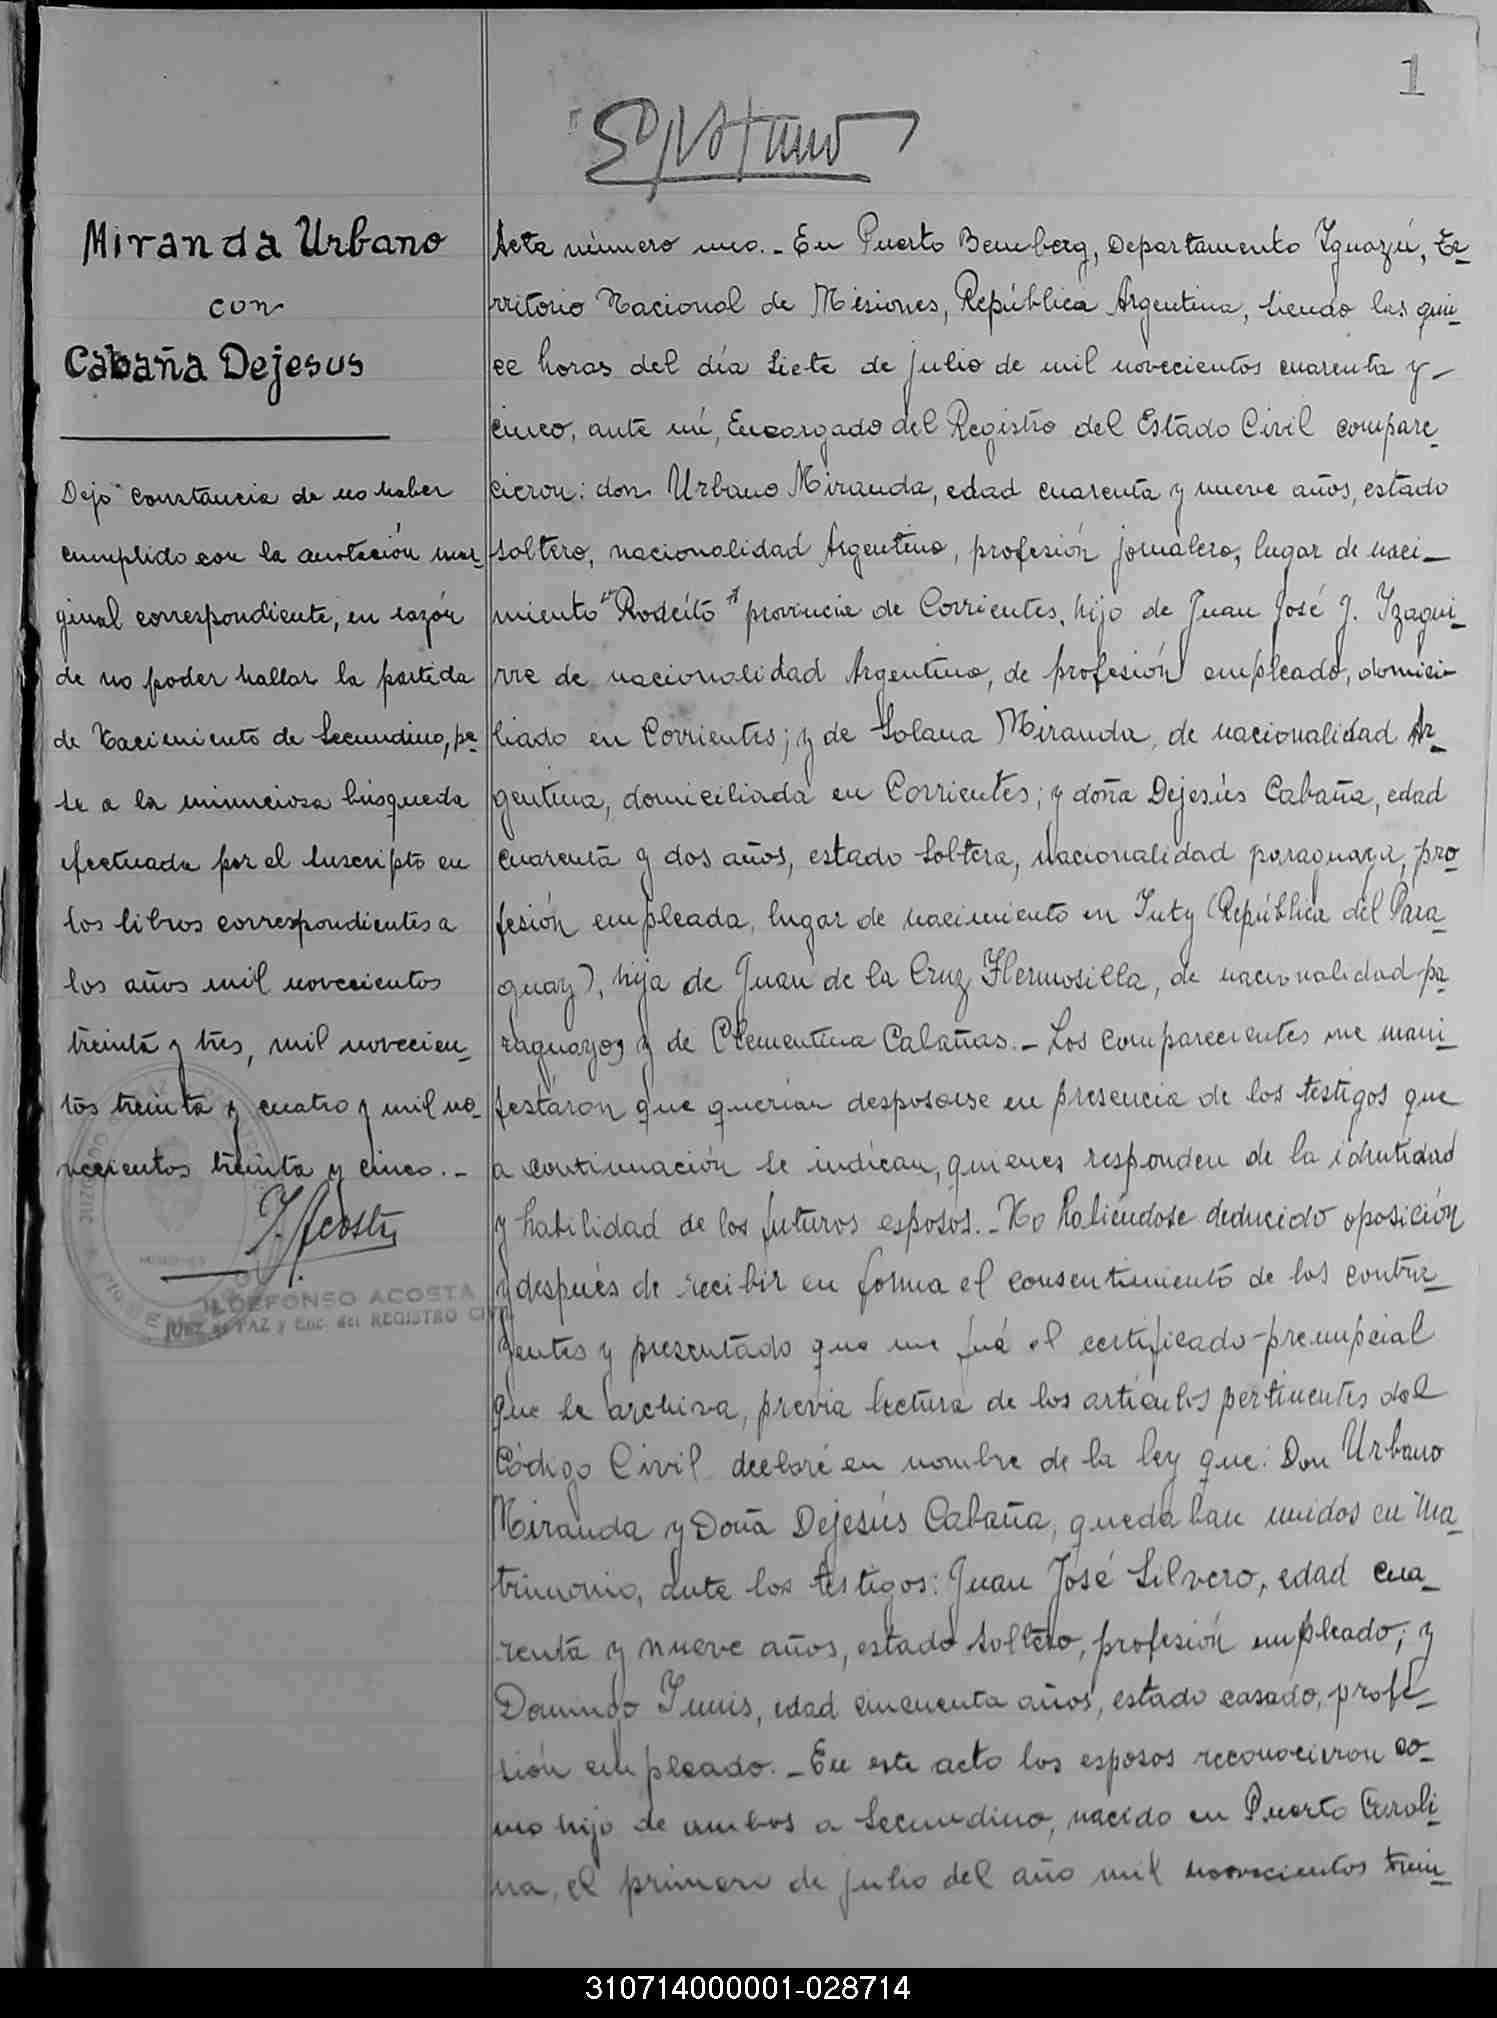 1
Miranda Urbano
con
Cabaña Dejesus
Dejo constancia de no haber
cumplido con la anotación mar-
ginal correspondiente, en razón
de no poder hallar la partida
de Nacimiento de Secundino, pe-
se a la minuciosa búsqueda
efectuada por el suscripto en
los libros correspondientes a
los años mil novecientos
treinta y tres, mil novecien-
tos treinta y cuatro y mil no-
vecientos treinta y cinco.-
I. Acosta
ILDEFONSO ACOSTA
JUEZ de PAZ y Enc. del REGISTRO CIVIL
Acta número uno.- En Puerto Bemberg, Departamento Iguazú, Te-
rritorio Nacional de Misiones, República Argentina, siendo las quin-
ce horas del día siete de julio de mil novecientos cuarenta y-
cinco, ante mí, Encargado del Registro del Estado Civil compare-
cieron: don Urbano Miranda, edad cuarenta y nueve años, estado
soltero, nacionalidad Argentino, profesión jornalero, lugar de naci-
miento "Rodeito" provincia de Corrientes, hijo de Juan José J. Izagui-
rre de nacionalidad Argentino, de profesión empleado, domici-
liado en Corrientes; y de Solana Miranda, de nacionalidad Ar-
gentina, domiciliada en Corrientes; y doña Dejesús Cabaña, edad
cuarenta y dos años, estado soltera, nacionalidad paraguaya, pro-
fesión empleada, lugar de nacimiento en Yuty (República del Para-
guay), hija de Juan de la Cruz Hermosilla, de nacionalidad pa-
raguayo, y de Clementina Cabañas.- Los comparecientes me mani-
festaron que querían desposarse en presencia de los testigos que
a continuación se indican, quienes responden de la identidad
y habilidad de los futuros esposos.- No habiéndose deducido oposición
y después de recibir en forma el consentimiento de los contra-
yentes y presentado que me fué el certificado prenupcial
que se archiva, previa lectura de los artículos pertinentes del
Código Civil declaré en nombre de la ley que: Don Urbano
Miranda y Doña Dejesús Cabaña, quedaban unidos en ma-
trimonio, ante los testigos: Juan José Silvero, edad cua-
renta y nueve años, estado soltero, profesión empleado; y
Domingo, edad cincuenta años, estado casado, profe-
sión empleado.- En este acto los esposos reconocieron co-
mo hijo de ambos a Secundino, nacido en Puerto Caroli-
na, el primero de julio del año mil novecientos trein-
310714000001-028714